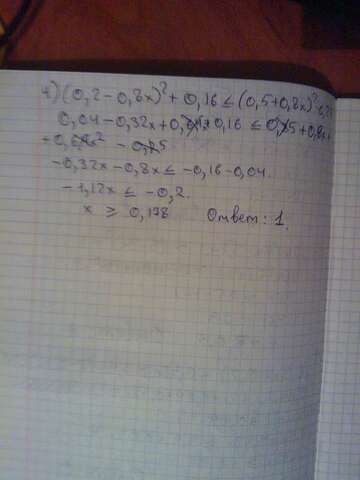 4) (0,2 − 0,8x)² + 0,16 ≤ (0,5 + 0,8x)²
0,04 − 0,32x + 0,64x² + 0,16 ≤ 0,25 + 0,8x +
+ 0,64x² − 0,25
− 0,32x − 0,8x ≤ −0,16 − 0,04.
− 1,12x ≤ −0,2.
x ≥ 0,178 Ответ: 1.